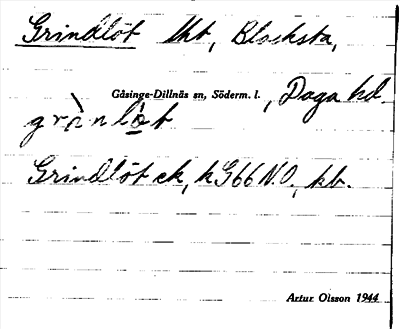 Grindlöt lht, Blacksta,
Gåsinge-Dillnäs sn, Söderm. l., Daga hd.
grìnlö̀t
Grindlöt ek, k G66 N.O., kb.
Artur Olsson 1944